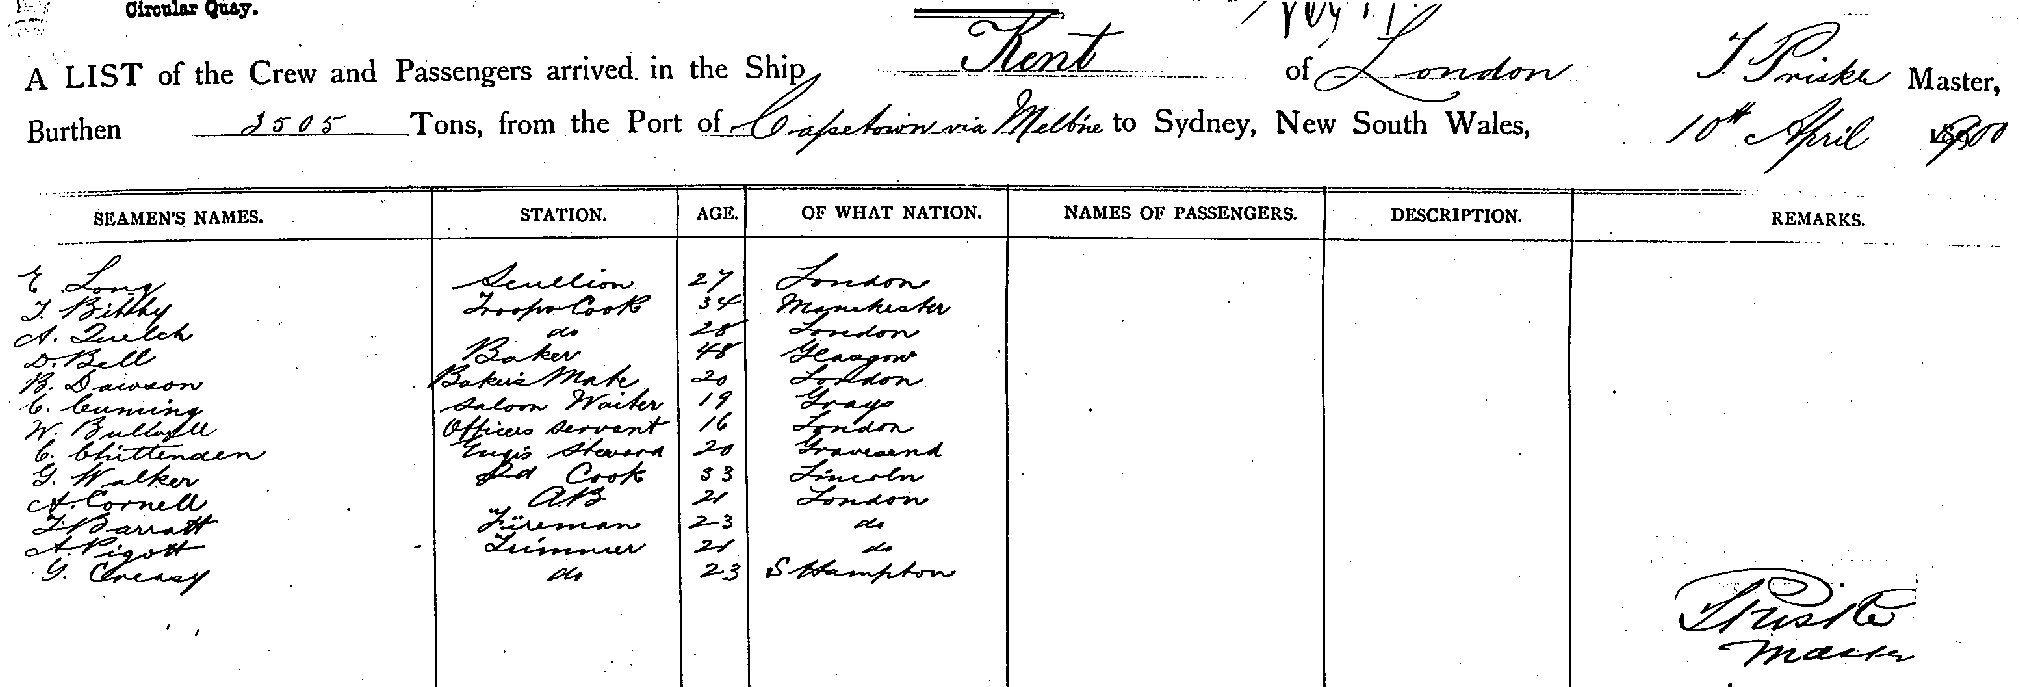 Circular Quay.
A LIST of the Crew and Passengers arrived in the Ship Kent of London T. Priske Master,
Burthen 3505 Tons, from the Port of Capetown via Melbne to Sydney, New South Wales, 10th April 1900
SEAMEN'S NAMES. STATION. AGE. OF WHAT NATION. NAMES OF PASSENGERS. DESCRIPTION. REMARKS.
E. Long Scullion 27 London
T. Bibby Troops Cook 34 Manchester
A. Quelch do 28 London
D. Bell Baker 48 Glasgow
B. Dawson Baker's Mate 20 London
C. Cuming Saloon Waiter 19 Grays
W. Officers Servant 16 London
C. Chittenden Engrs Steward 20 Gravesend
G. Walker 2nd Cook 33 Lincoln
A. Cornell A.B 21 London
T. Barratt Fireman 23 do
A. Pigott Trimmer 21 do
G. Creasy do 23 S Hampton
T Priske
Master